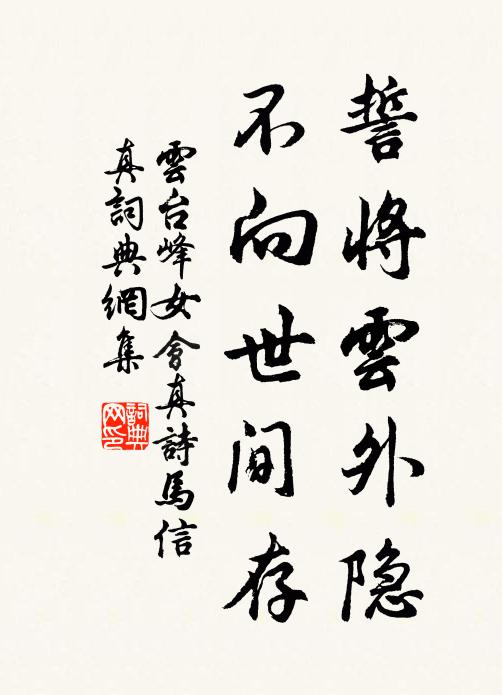 誓將雲外隐
不向世间存
雲台峰女會真詩馬信
真詞典網集
詞典
网印